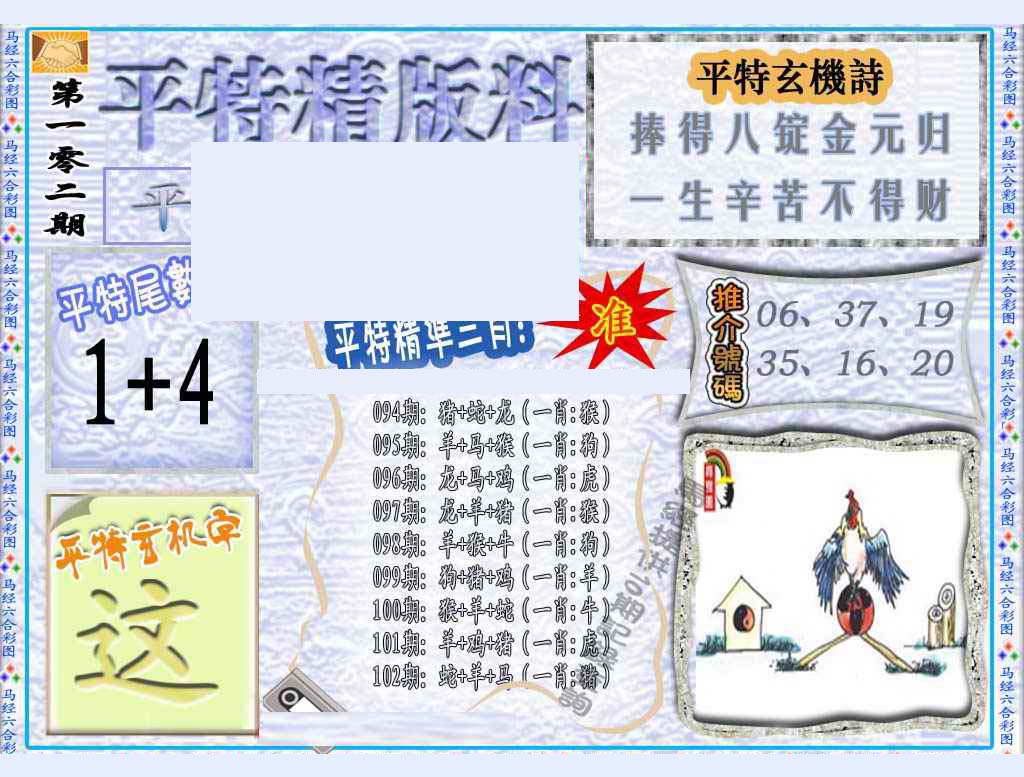 第一零二期
平特精版料
平特玄機詩
捧得八锭金元归
一生辛苦不得财
平
平特尾數
1+4
平特精準三肖!
准
推介號碼
06、37、19
35、16、20
094期: 猪+蛇+龙 (一肖:猴)
095期: 羊+马+猴 (一肖:狗)
096期: 龙+马+鸡 (一肖:虎)
097期: 龙+羊+猪 (一肖:猴)
098期: 羊+猴+牛 (一肖:狗)
099期: 狗+猪+鸡 (一肖:羊)
100期: 猴+羊+蛇 (一肖:牛)
101期: 羊+鸡+猪 (一肖:虎)
102期: 蛇+羊+马 (一肖:猪)
平特玄机字
这
马经六合彩图 马经六合彩图 马经六合彩图 马经六合彩图 马经六合彩图 马经六合彩图 马经六合彩
马经六合彩图 马经六合彩图 马经六合彩图 马经六合彩图 马经六合彩图 马经六合彩图 马经六合彩图